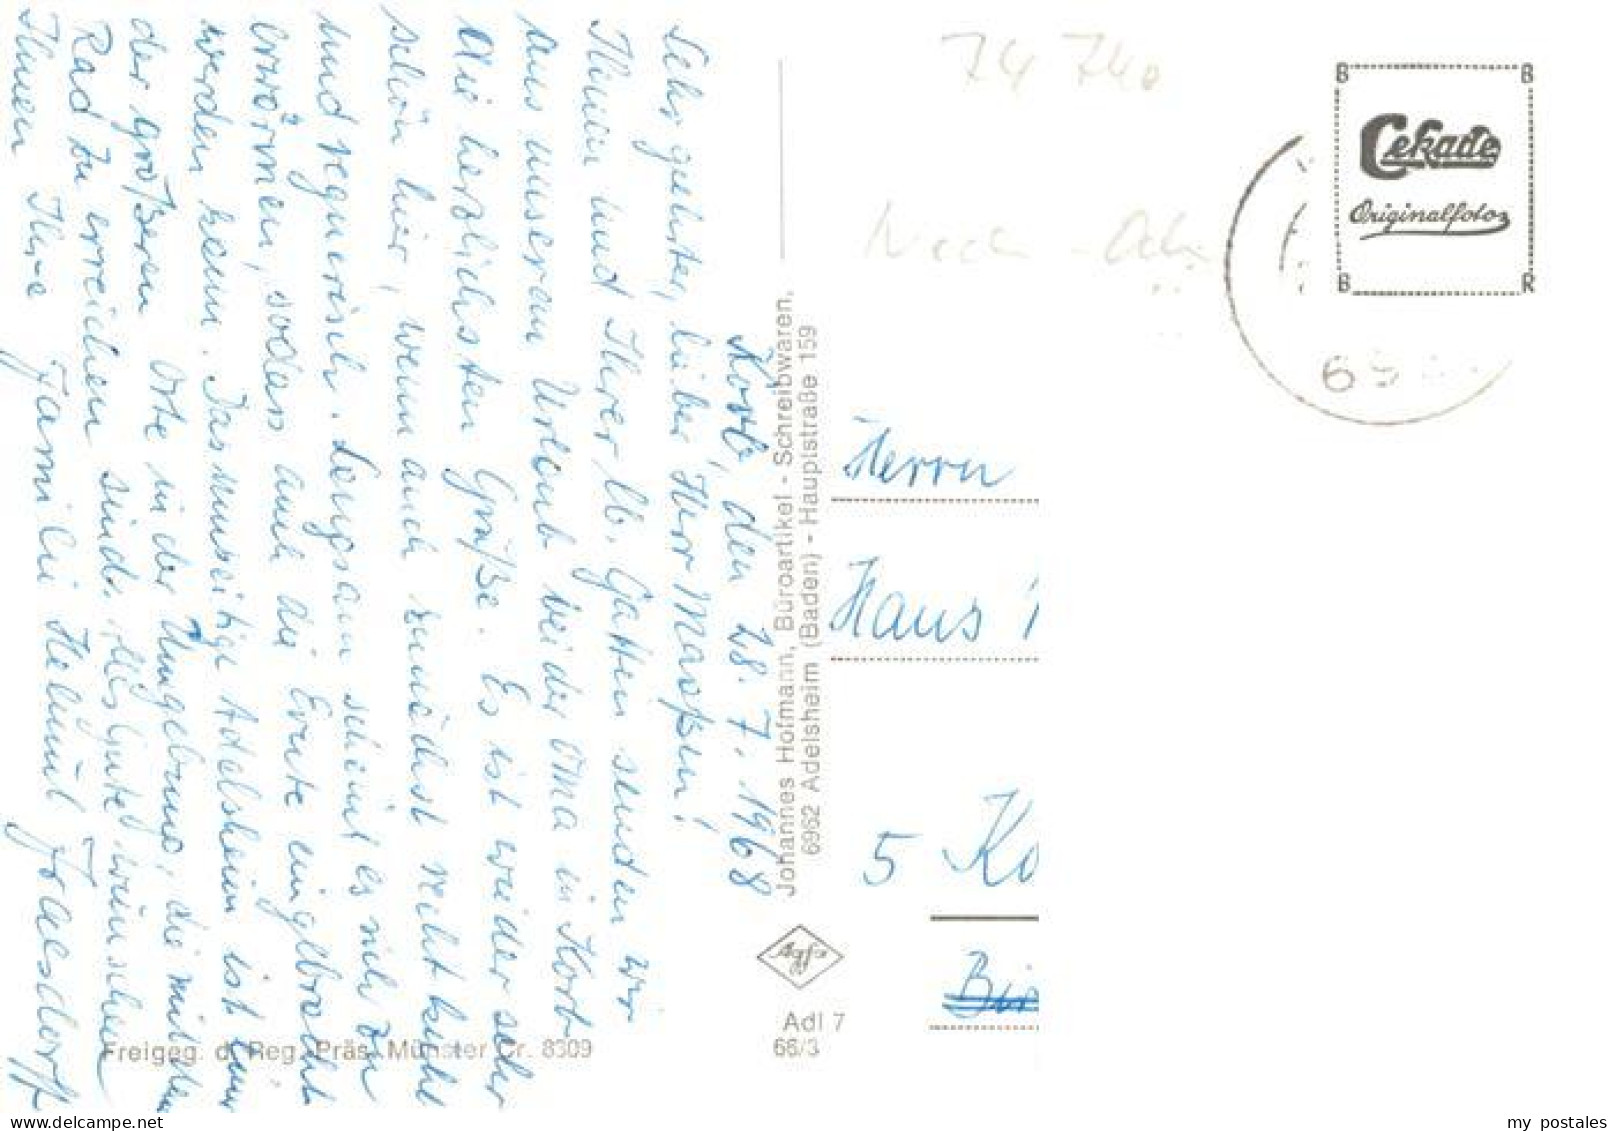 Korb, den 28.7.1968
Sehr geehrter, lieber Herr Maaßen!
Ihnen und Ihrer lb. Gattin senden wir
aus unserem Urlaub bei der Oma in Korb
die herzlichsten Grüße. Es ist wieder sehr
schön hier, wenn auch zunächst recht kühl
und regnerisch. Langsam scheint es sich zu
erwärmen, sodass auch die Ernte eingebracht
werden kann. Das umseitige Adelsheim ist einer
der größeren Orte in der Umgebung, die mit dem
Rad zu erreichen sind. Alles Gute wünschen
Ihnen Ihre Familie Helmut
Johannes Hofmann, Büroartikel - Schreibwaren,
6962 Adelsheim (Baden) - Hauptstraße 159
Agfa
Adl 7
66/3
Freigeg. d. Reg. Präs. Münster Cr. 8309
74 740
B B
Cekade
Originalfoto
B R
69
Herrn
Hans
5 Ko
my postales